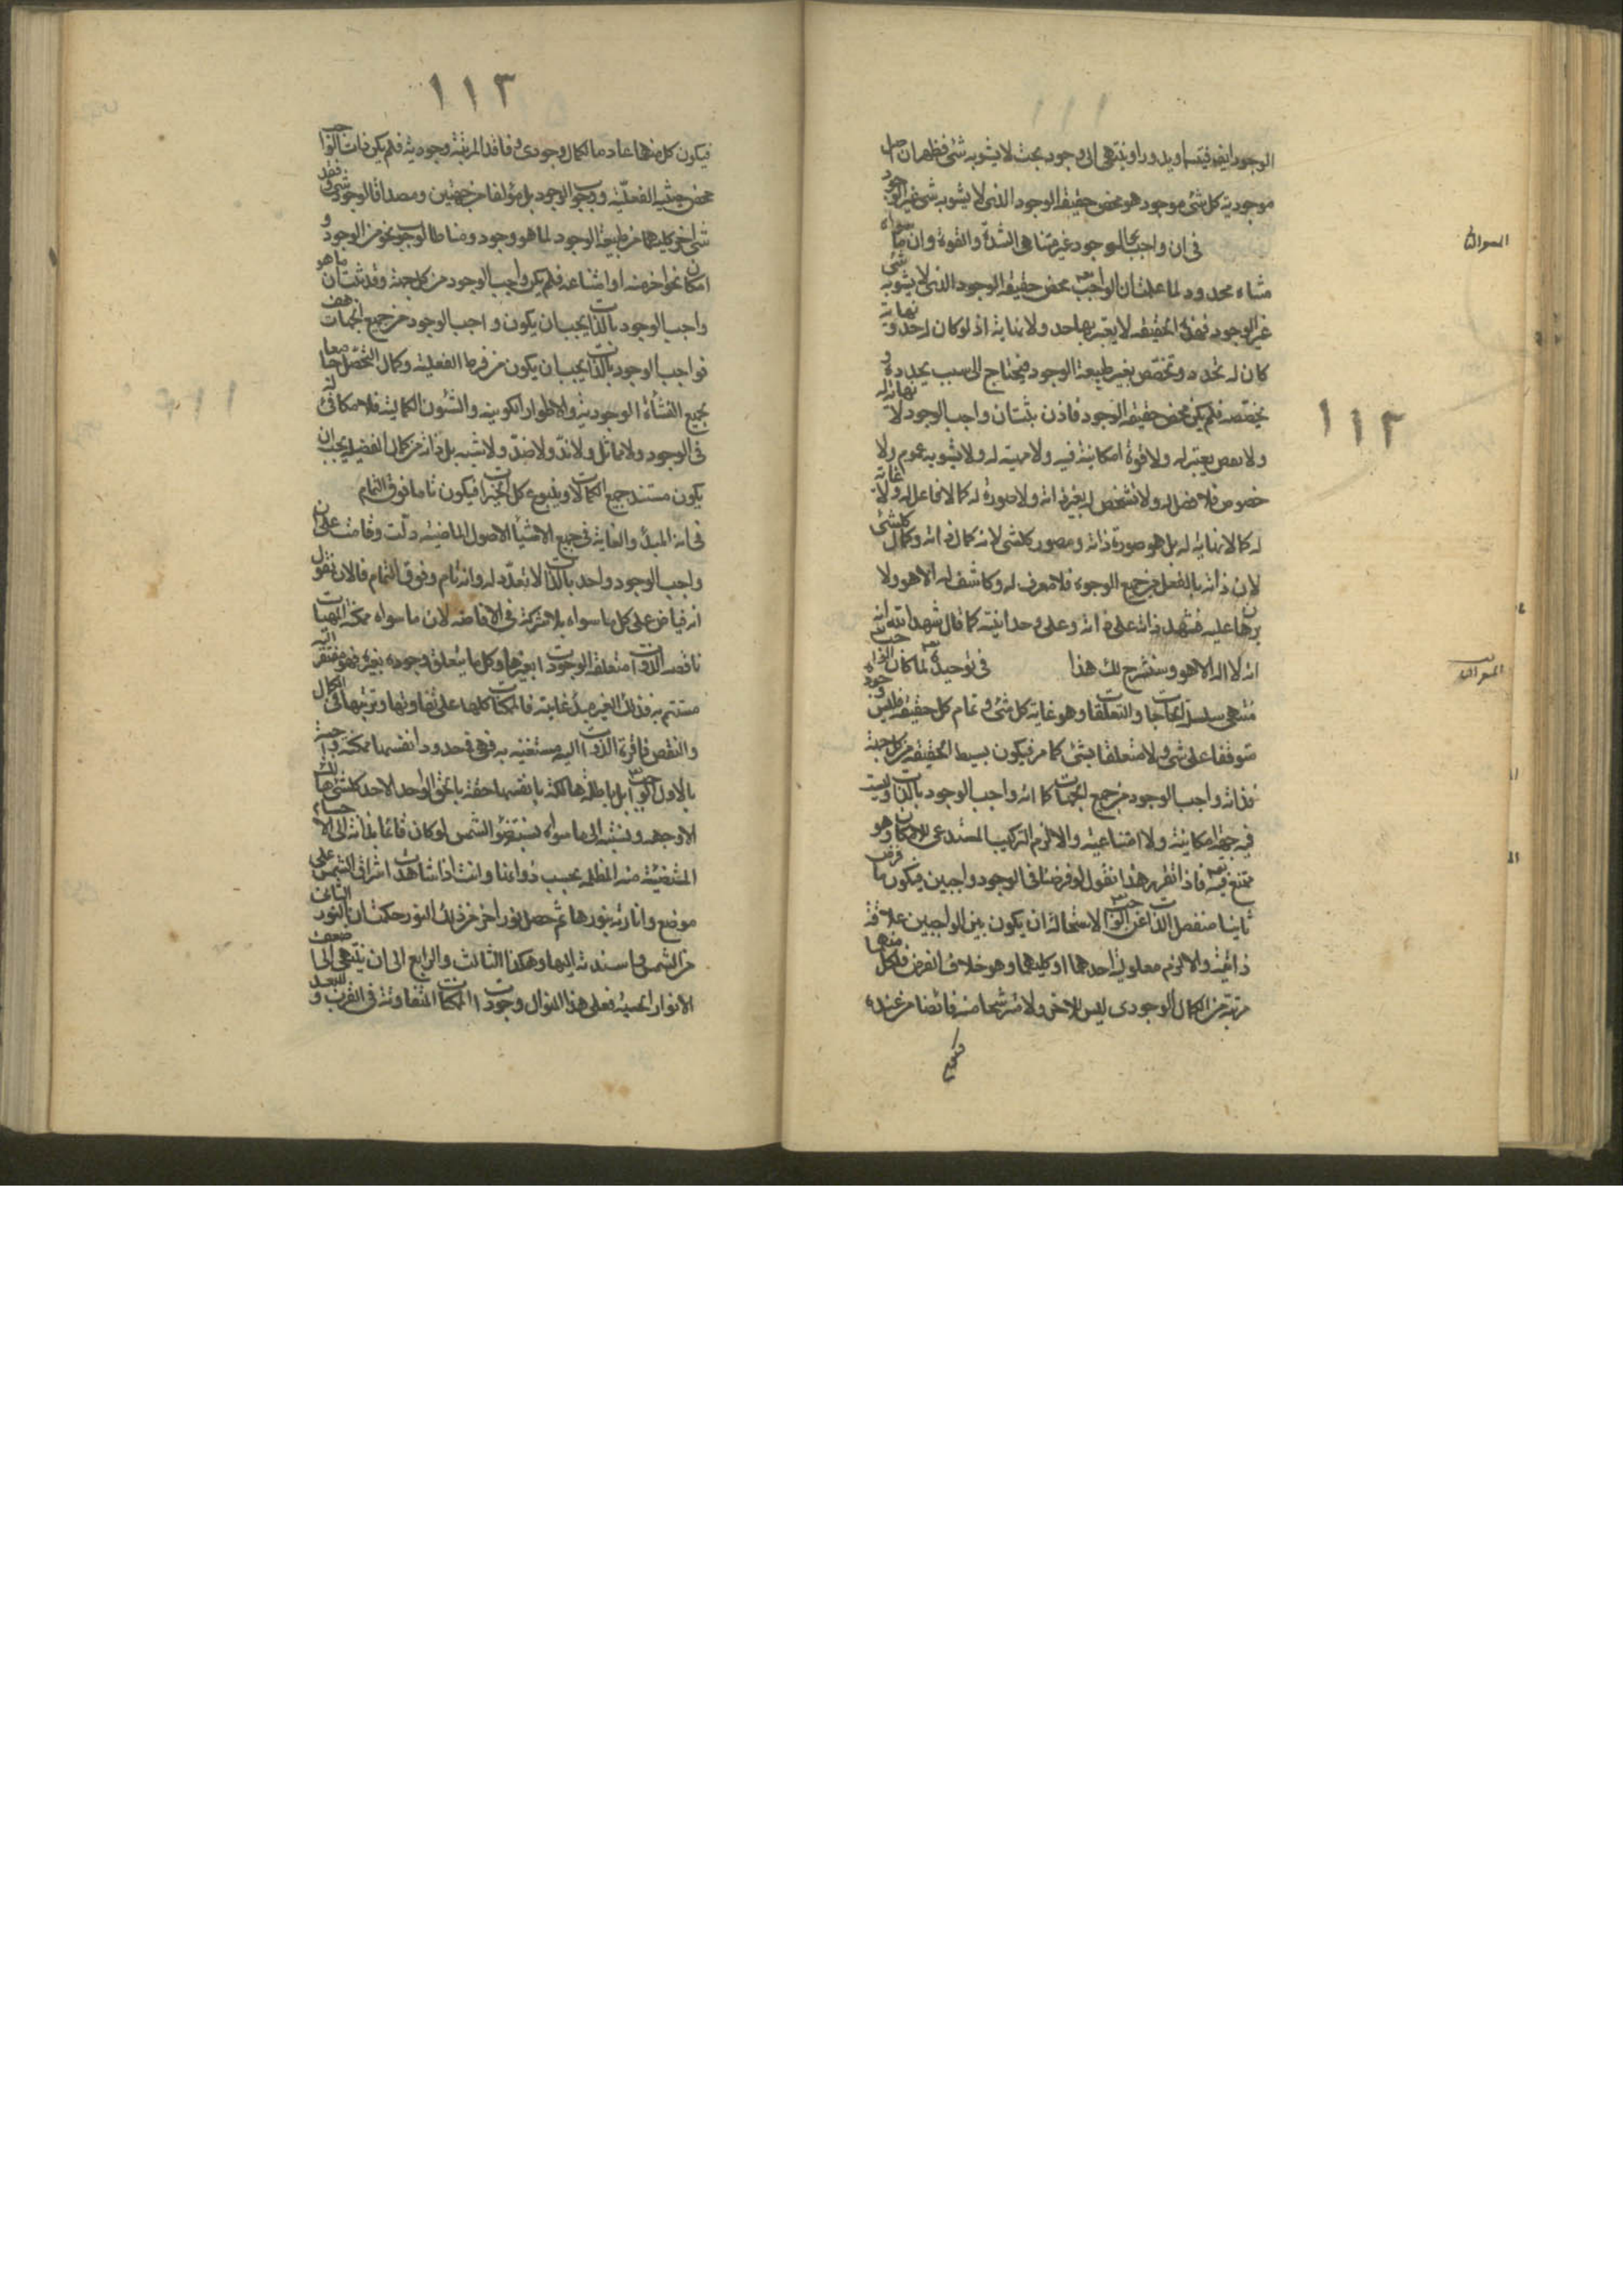 ١١٢
الوجود ايضا فيتسلسل او يدور او ينتهى الى وجود بحت لا يشوبه شئ فظهر ان اصل
موجودية كل شئ موجود هو محض حقيقة الوجود الذى لا يشوبه شئ غير الوجود
فى ان واجب الوجود غير متناهى الشدة والقوة وان ما سواه
متناه محدود لما علمت ان الواجب تعالى محض حقيقة الوجود الذى لا يشوبه شئ
غير الوجود فهذه الحقيقة لا يعتريها حد ولا نهاية اذ لو كان له حد ونهاية
كان له تحدد وتخصص بغير طبيعة الوجود فيحتاج الى سبب يحدده و
يخصصه فلم يكن محض حقيقة الوجود فاذن ثبت ان واجب الوجود لا نهاية له
ولا نقص يعتريه ولا قوة امكانية فيه ولا مهية له ولا يشوبه عموم ولا
خصوص فلا فصل له ولا تشخص له بغير ذاته ولا صورة له كما لا فاعل له ولا غاية
له كما لا نهاية له بل هو صورة ذاته ومصور كلشئ لانه كمال ذاته وكمال كلشئ
لان ذاته بالفعل من جميع الوجوه فلا معرف له ولا كاشف له الا هو ولا
برهان عليه فشهد ذاته على ذاته وعلى وحدانيته كما قال شهد الله انه
انه لا اله الا هو وسنشرح لك هذا فى توحيده تعالى لما كان الواجب
منتهى سلسلة الحاجات والتعلقات وهو غاية كل شئ وتمام كل حقيقة فليس وجوده
متوقفا على شئ ولا متعلقا بشئ كما مر فيكون بسيط الحقيقة من كل جهة
فذاته واجب الوجود من جميع الجهات كما انه واجب الوجود بالذات وليست
فيه جهة امكانية ولا امتناعية والا لزم التركيب المستدعى للامكان وهو
يمتنع فيه تعالى فاذا تقرر هذا نقول لو فرضنا فى الوجود واجبين فيكون ما فرض
ثانيا منفصل الذات عن الواجب لاستحالة ان يكون بين الواجبين علاقة
ذاتية والا لزم معلولية احدهما او كليهما وهو خلاف الفرض فلكل منهما
مرتبة من الكمال الوجودى ليس للاخر ولا مترشحا منه فائضا من عنده
فيكون
١١٣
فيكون كل منهما عادما لكمال وجودى وفاقدا لمرتبة وجودية فلم يكن ذات الواجب
محض حيثية الفعلية ووجوب الوجود بل مؤلفا من جهتين ومصداقا لوجود شئ وفقد
شئ اخر كليهما من طبيعة الوجود لما هو وجود ومناطا لوجوب نحو من الوجود و
امكان نحو اخر منه او امتناعه فلم يكن واجب الوجود من كل جهة وقد ثبت ان ما هو
واجب الوجود بالذات يجب ان يكون واجب الوجود من جميع الجهات هف
فواجب الوجود بالذات يجب ان يكون من فرط الفعلية وكمال التحصل جامعا
لجميع النشأة الوجودية والاطوار الكونية والشئون الكمالية فلا مكافئ له
فى الوجود ولا مماثل ولا ند ولا ضد ولا شبه بل ذاته من كمال الفضيلة يجب ان
يكون مستند جميع الكمالات وينبوع كل الخيرات فيكون تاما فوق التمام
فى انه المبدأ والغاية فى جميع الاشياء الاصول الماضية دلت وقامت على ان
واجب الوجود واحد بالذات لا تعدد له وانه تام وفوق التمام فالان نقول
انه فياض على كل ما سواه بلا شركة فى الافاضة لان ما سواه ممكنة المهيات
ناقصة الذوات متعلقة الوجودات بغيرها وكل ما يتعلق وجوده بغيره فهو مفتقر اليه
مستتم به فذلك الغير مبدؤه وغايته فالممكنات كلها على تفاوتها وترتبها فى الكمال
والنقص فاقرة الذوات اليه مستغنية به فهى فى حدود انفسها ممكنة واجبة
بالاول الواجب تعالى بل باطلة هالكة بانفسها حقة بالحق الواحد الاحد كلشئ هالك
الا وجهه ونسبته الى ما سواه نسبة ضوء الشمس لو كان قائما بذاته الى الاجسام
المستضيئة منه المظلمة بحسب ذواتها وانت اذا شاهدت اشراق الشمس على
موضع وانارته بنورها ثم حصل نور اخر من ذلك النور حكمت ان النور الثانى
من الشمس واسندته اليها وهكذا الثالث والرابع الى ان ينتهى الى اضعف
الانوار الحسية فعلى هذا المنوال وجودات الممكنات المتفاوتة فى القرب والبعد و